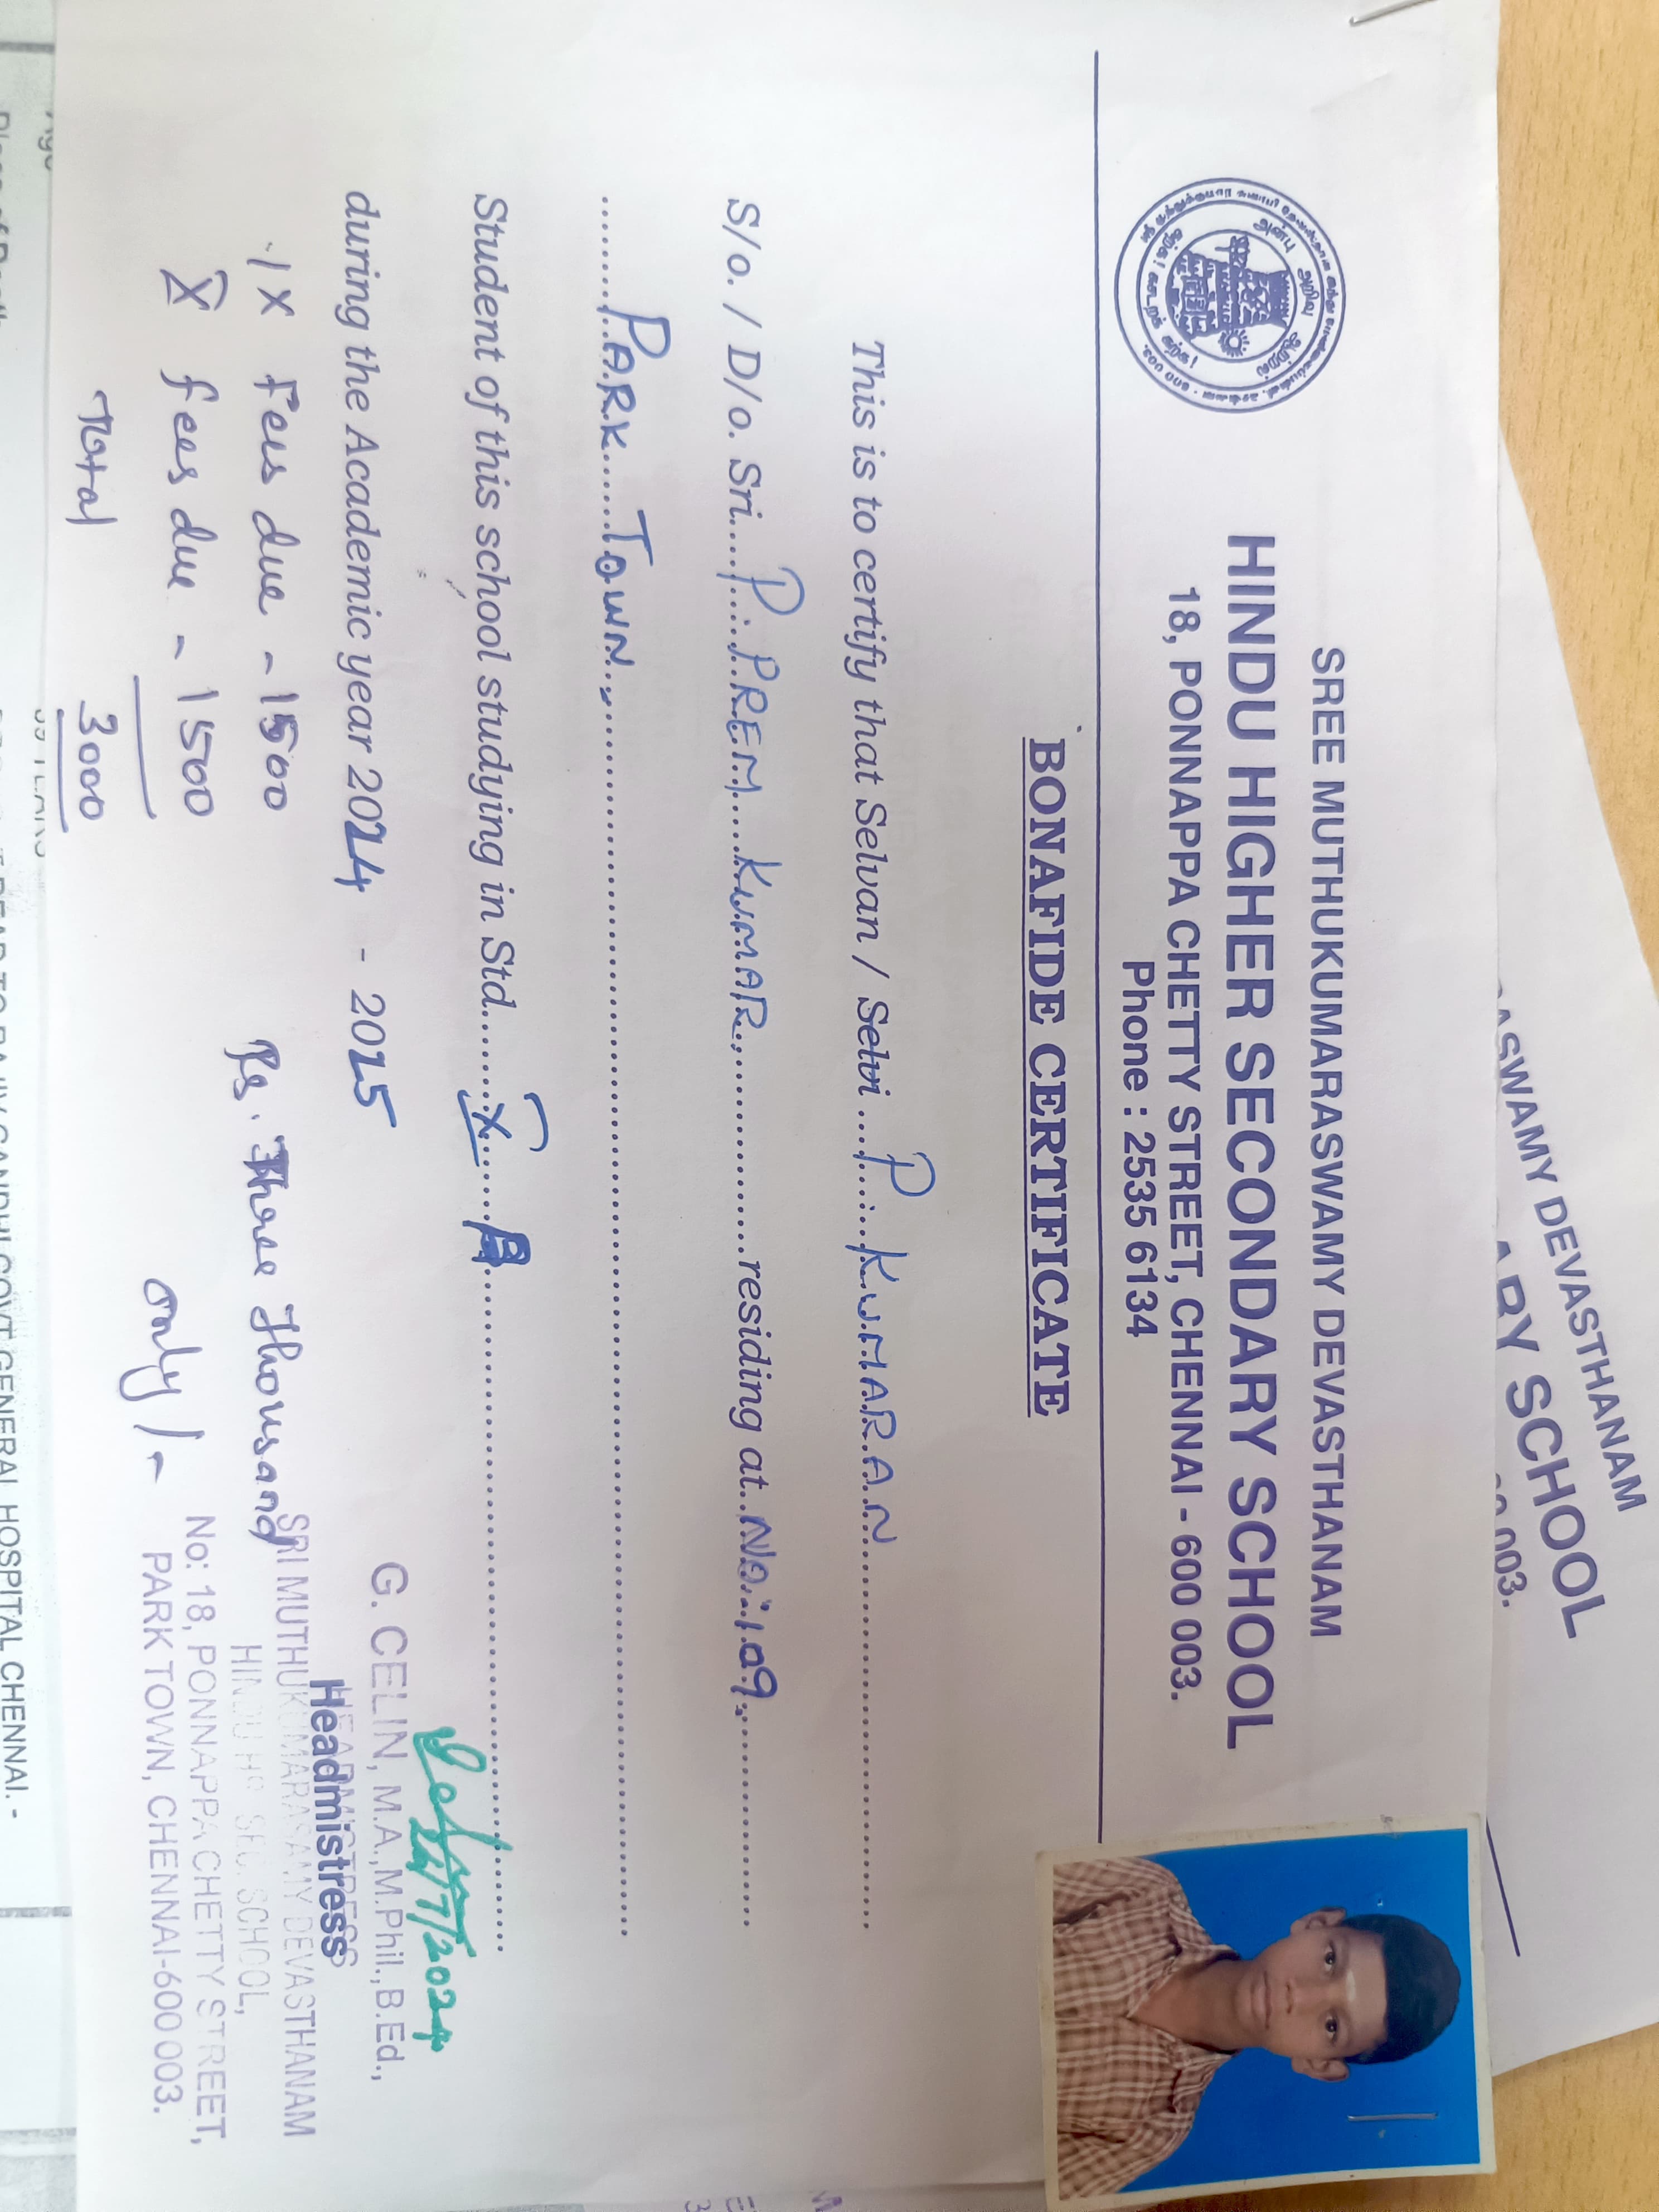 SREE MUTHUKUMARASWAMY DEVASTHANAM
HINDU HIGHER SECONDARY SCHOOL
18, PONNAPPA CHETTY STREET, CHENNAI - 600 003.
Phone : 2535 6134
BONAFIDE CERTIFICATE
This is to certify that Selvan / Selvi P. KUMARAN
S/o. / D/o. Sri. P. PREM KUMAR residing at No: 109
PARK TOWN.
Student of this school studying in Std. X
during the Academic year 2024 - 2025
IX fees due - 1500
X fees due - 1500
Total 3000
Rs. Three Thousand
only/-
24/7/2024
G. CELIN, M.A., M.Phil., B.Ed.,
Headmistress
HEADMISTRESS
SRI MUTHUKUMARASAMY DEVASTHANAM
HINDU HR. SEC. SCHOOL,
No: 18, PONNAPPA CHETTY STREET,
PARK TOWN, CHENNAI-600 003.
ASWAMY DEVASTHANAM
ARY SCHOOL
003.
GOVT GENERAL HOSPITAL CHENNAI. -